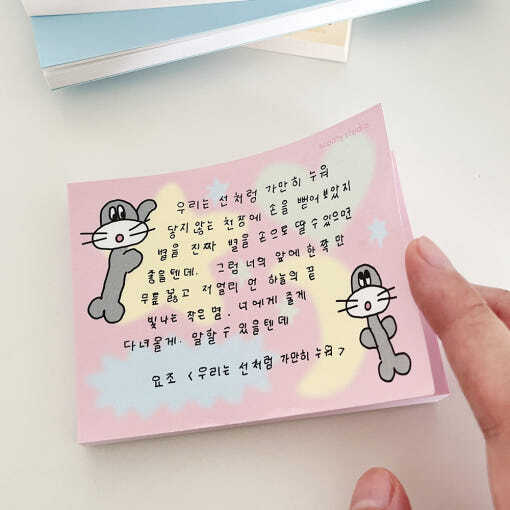 우리는 선처럼 가만히 누워
닿지않는 천장에 손을 뻗어보았지
별을 진짜 별을 손으로 딸 수 있으면
좋을텐데. 그럼 너의 앞에 한쪽 만
무릎 꿇고 저멀리 언 하늘의 끝
빛나는 작은 별. 너에게 줄게
다녀올게. 말할 수 있을텐데
요조 <우리는 선처럼 가만히 누워>